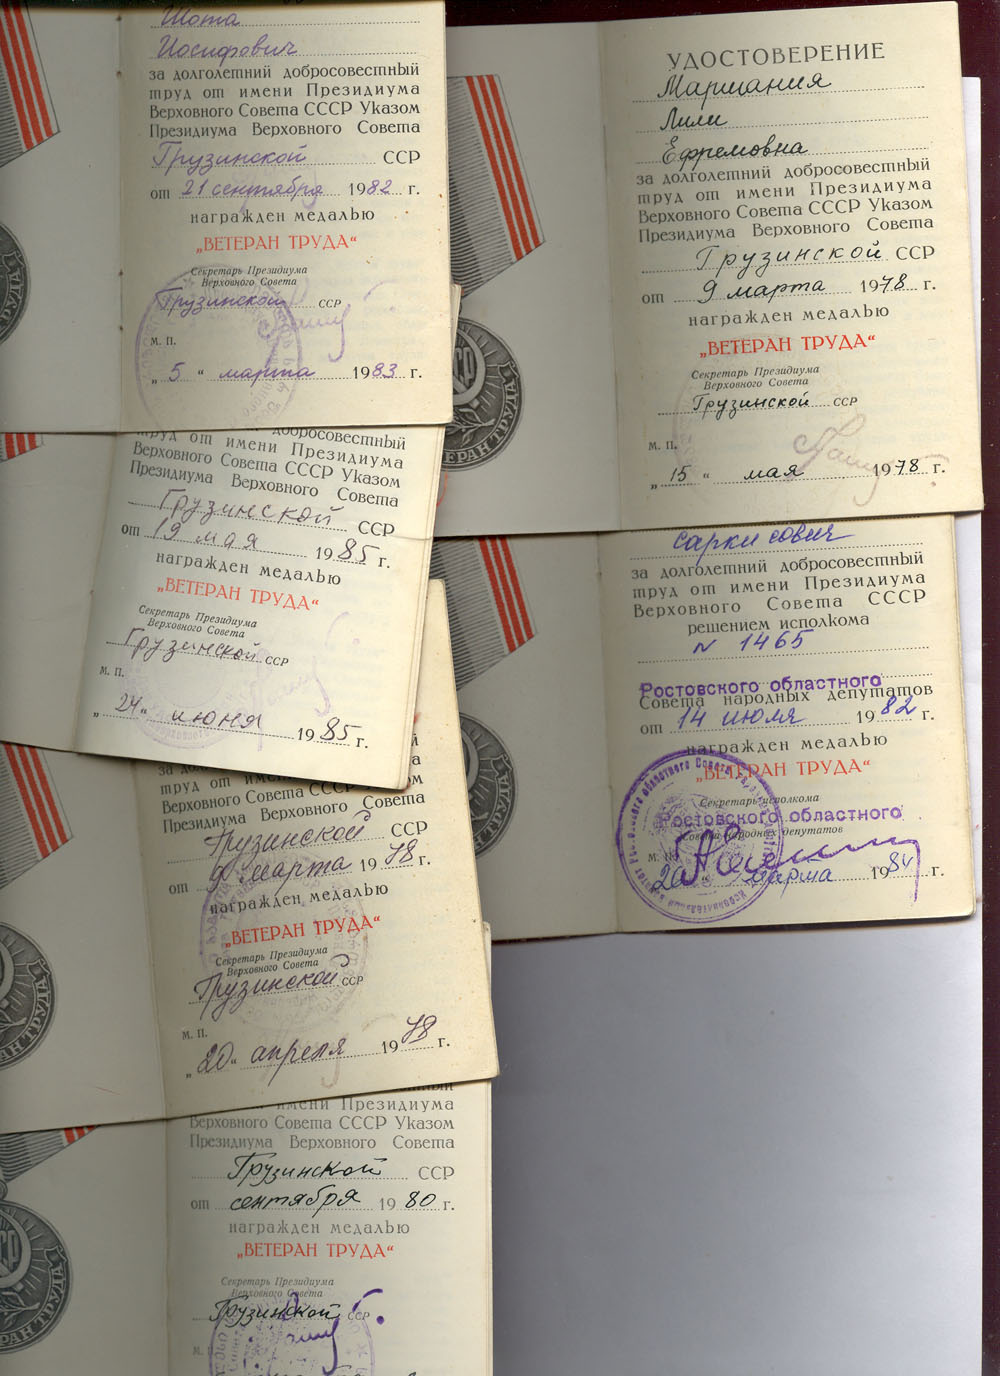 Шота
Иосифович
за долголетний добросовестный
труд от имени Президиума
Верховного Совета СССР Указом
Президиума Верховного Совета
Грузинской ССР
от 21 сентября 1982 г.
награжден медалью
„ВЕТЕРАН ТРУДА“
Секретарь Президиума
Верховного Совета
Грузинской ССР
М. П.
„5“ марта 1983 г.
добросовестный
труд от имени Президиума
Верховного Совета СССР Указом
Президиума Верховного Совета
Грузинской ССР
от 19 мая 1985 г.
награжден медалью
„ВЕТЕРАН ТРУДА“
Секретарь Президиума
Верховного Совета
Грузинской ССР
М. П.
„24“ июня 1985 г.
за
труд от имени
Верховного Совета СССР
Президиума Верховного Совета
Грузинской ССР
от 9 марта 1978 г.
награжден медалью
„ВЕТЕРАН ТРУДА“
Секретарь Президиума
Верховного Совета
Грузинской ССР
М. П.
„20“ апреля 1978 г.
имени Президиума
Верховного Совета СССР Указом
Президиума Верховного Совета
Грузинской ССР
от сентября 1980 г.
награжден медалью
„ВЕТЕРАН ТРУДА“
Секретарь Президиума
Верховного Совета
Грузинской ССР
М.
УДОСТОВЕРЕНИЕ
Маршания
Лили
Ефремовна
за долголетний добросовестный
труд от имени Президиума
Верховного Совета СССР Указом
Президиума Верховного Совета
Грузинской ССР
от 9 марта 1978 г.
награжден медалью
„ВЕТЕРАН ТРУДА“
Секретарь Президиума
Верховного Совета
Грузинской ССР
М. П.
„15“ мая 1978 г.
Саркисович
за долголетний добросовестный
труд от имени Президиума
Верховного Совета СССР
решением исполкома
N 1465
Ростовского областного
Совета народных депутатов
от 14 июля 1982 г.
награжден медалью
„ВЕТЕРАН ТРУДА“
Секретарь исполкома
Ростовского областного
Совета народных депутатов
М. П.
20 марта 1984 г.